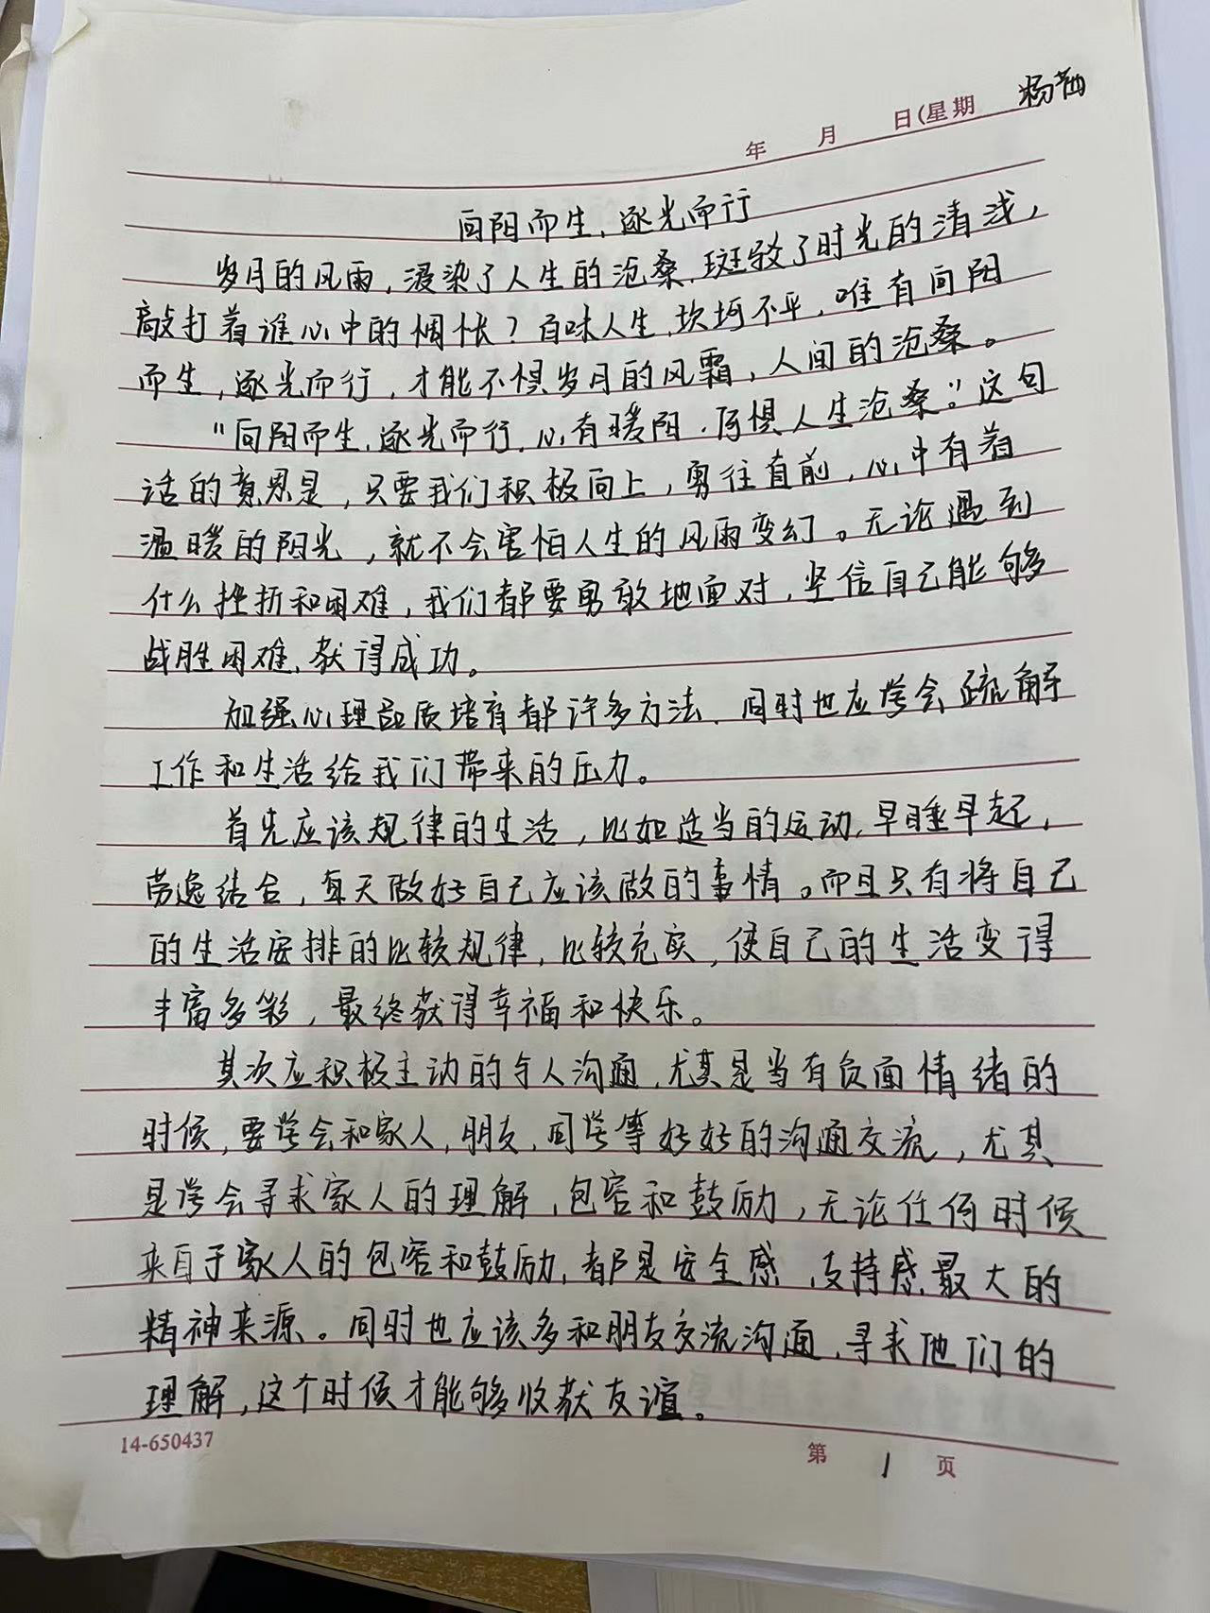 年 月 日(星期 杨茜
向阳而生,逐光而行
岁月的风雨,浸染了人生的沧桑,斑驳了时光的清浅,
敲打着谁心中的惆怅?百味人生,坎坷不平,唯有向阳
而生,逐光而行,才能不惧岁月的风霜,人间的沧桑。
"向阳而生,逐光而行,心有暖阳,何惧人生沧桑。"这句
话的意思是,只要我们积极向上,勇往直前,心中有着
温暖的阳光,就不会害怕人生的风雨变幻。无论遇到
什么挫折和困难,我们都要勇敢地面对,坚信自己能够
战胜困难,获得成功。
加强心理品质培育都许多方法,同时也应学会疏解
工作和生活给我们带来的压力。
首先应该规律的生活,比如适当的运动,早睡早起,
劳逸结合,每天做好自己应该做的事情。而且只有将自己
的生活安排的比较规律,比较充实,使自己的生活变得
丰富多彩,最终获得幸福和快乐。
其次应积极主动的与人沟通,尤其是当有负面情绪的
时候,要学会和家人,朋友,同学等好好的沟通交流,尤其
是学会寻求家人的理解,包容和鼓励,无论任何时候
来自于家人的包容和鼓励,都是安全感,支持感最大的
精神来源。同时也应该多和朋友交流沟通,寻求他们的
理解,这个时候才能够收获友谊。
14-650437 第 1 页